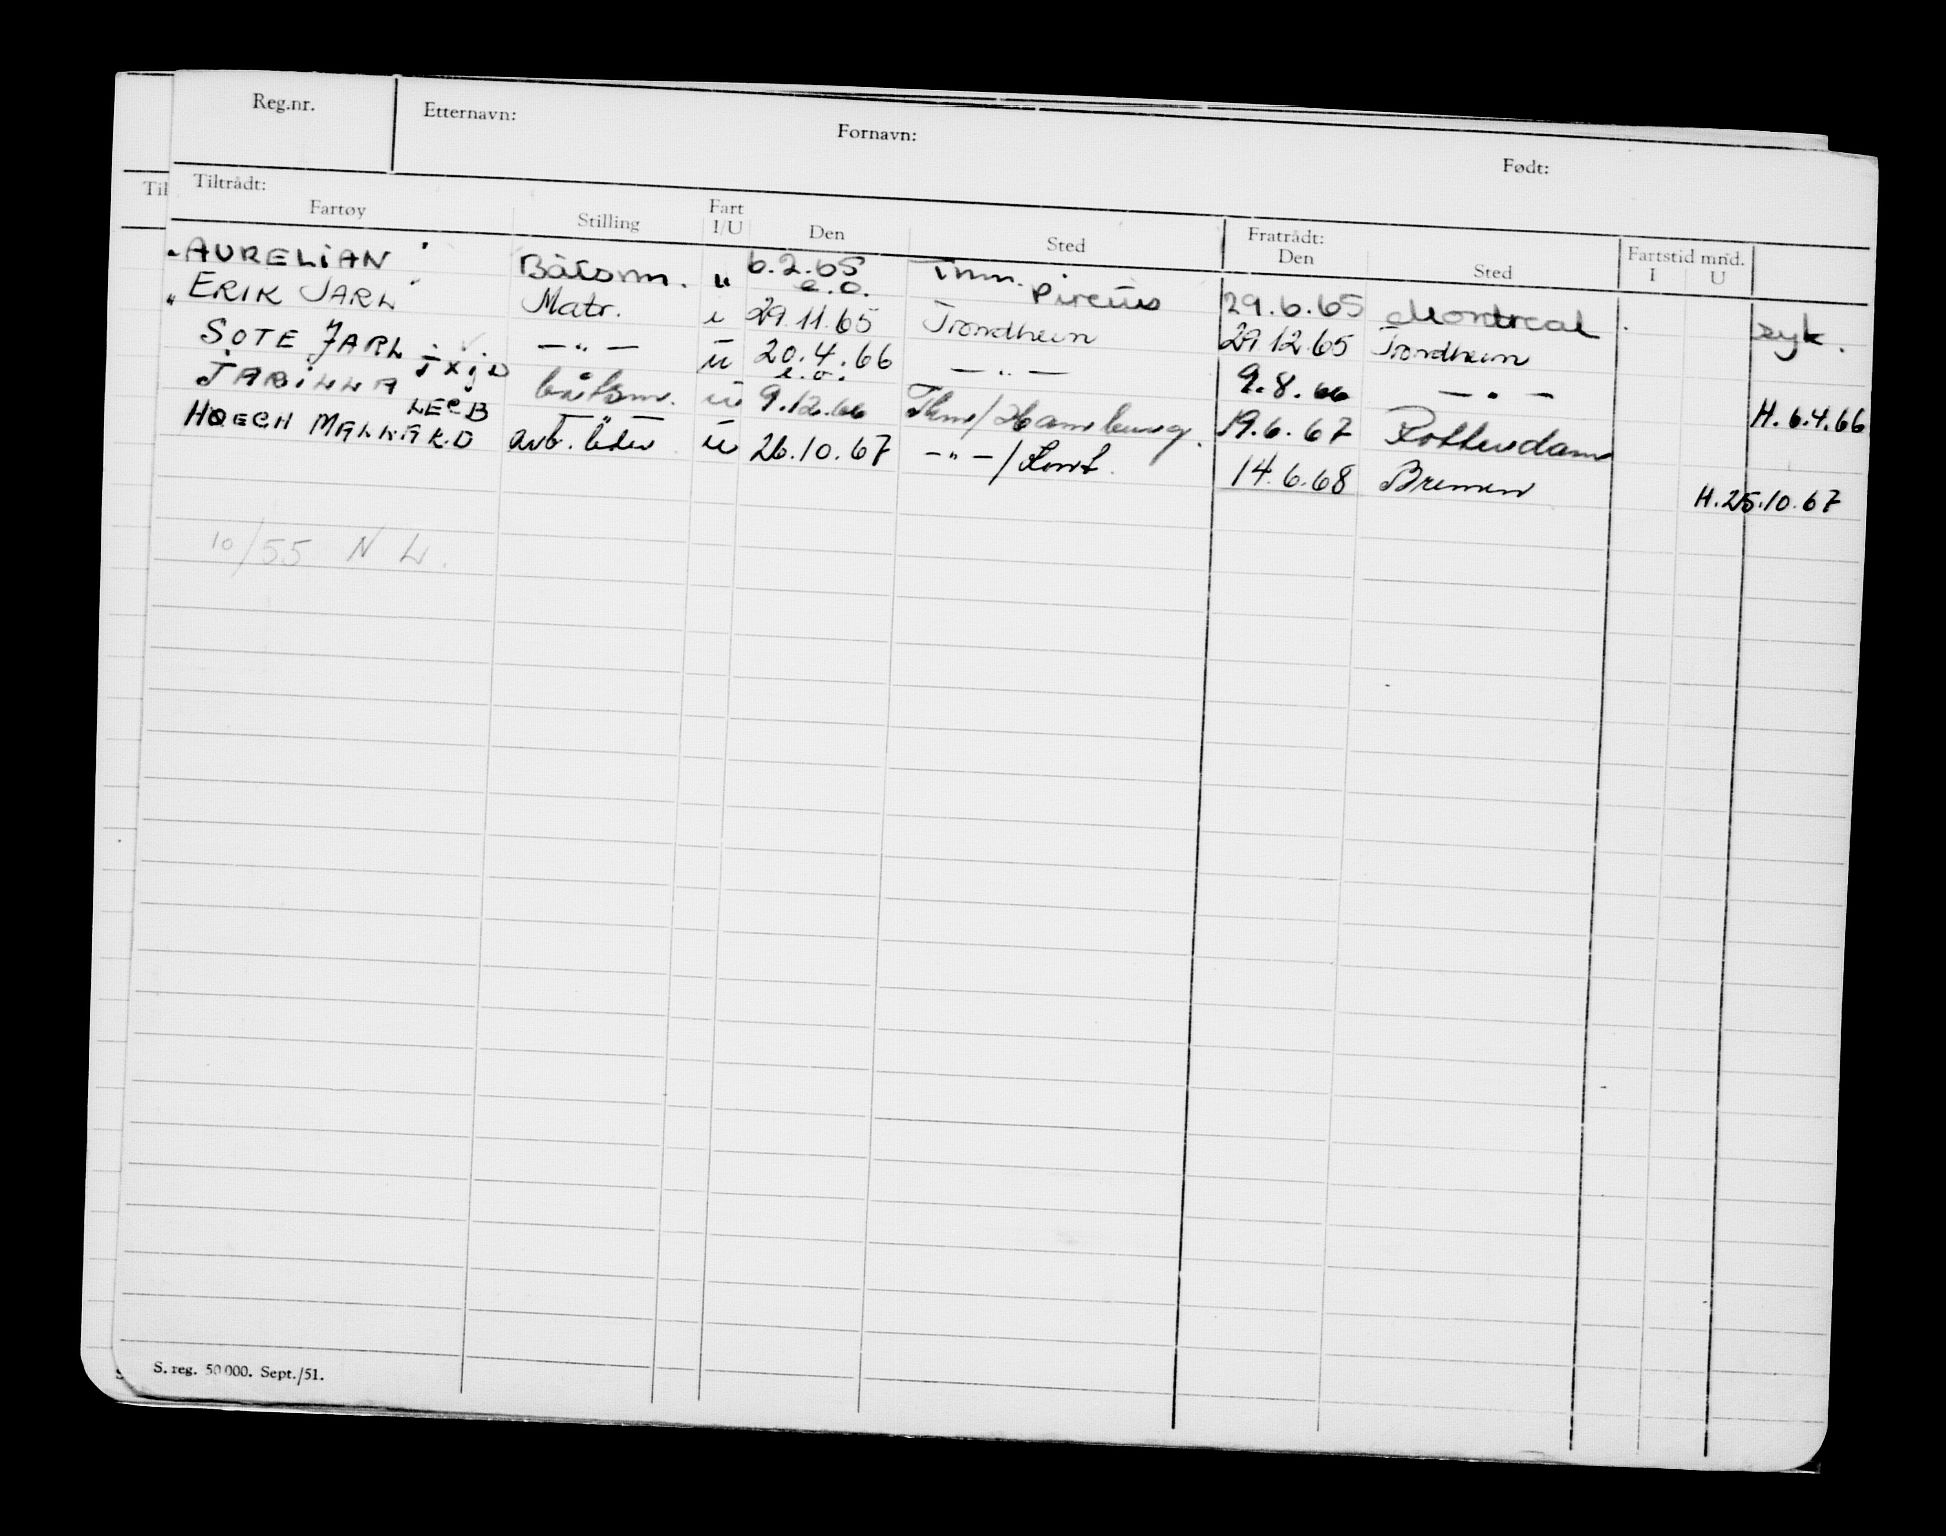 Reg.nr. Etternavn: Fornavn: Født:
Tiltrådt: Fratrådt:
Fartøy Stilling Fart I/U Den Sted Den Sted Fartstid mnd. I U
"AURELIAN" Båtsm. u 6.2.65 e.o. Thm. Pireus 29.6.65 Montreal syk.
"ERIK JARL" Matr. i 29.11.65 Trondheim 29.12.65 Trondheim
SOTE JARL JXJD — " — u 20.4.66 e.o. — " — 9.8.66 — " — H. 6.4.66
JABILLA LECB båtsm. u 9.12.66 Thm/Hamburg. 19.6.67 Rotterdam
HOEGH MALLARD — " — arb. leder u 26.10.67 — " — / 14.6.68 Bremen H. 25.10.67
10/55 N L.
S. reg. 50 000. Sept./51.